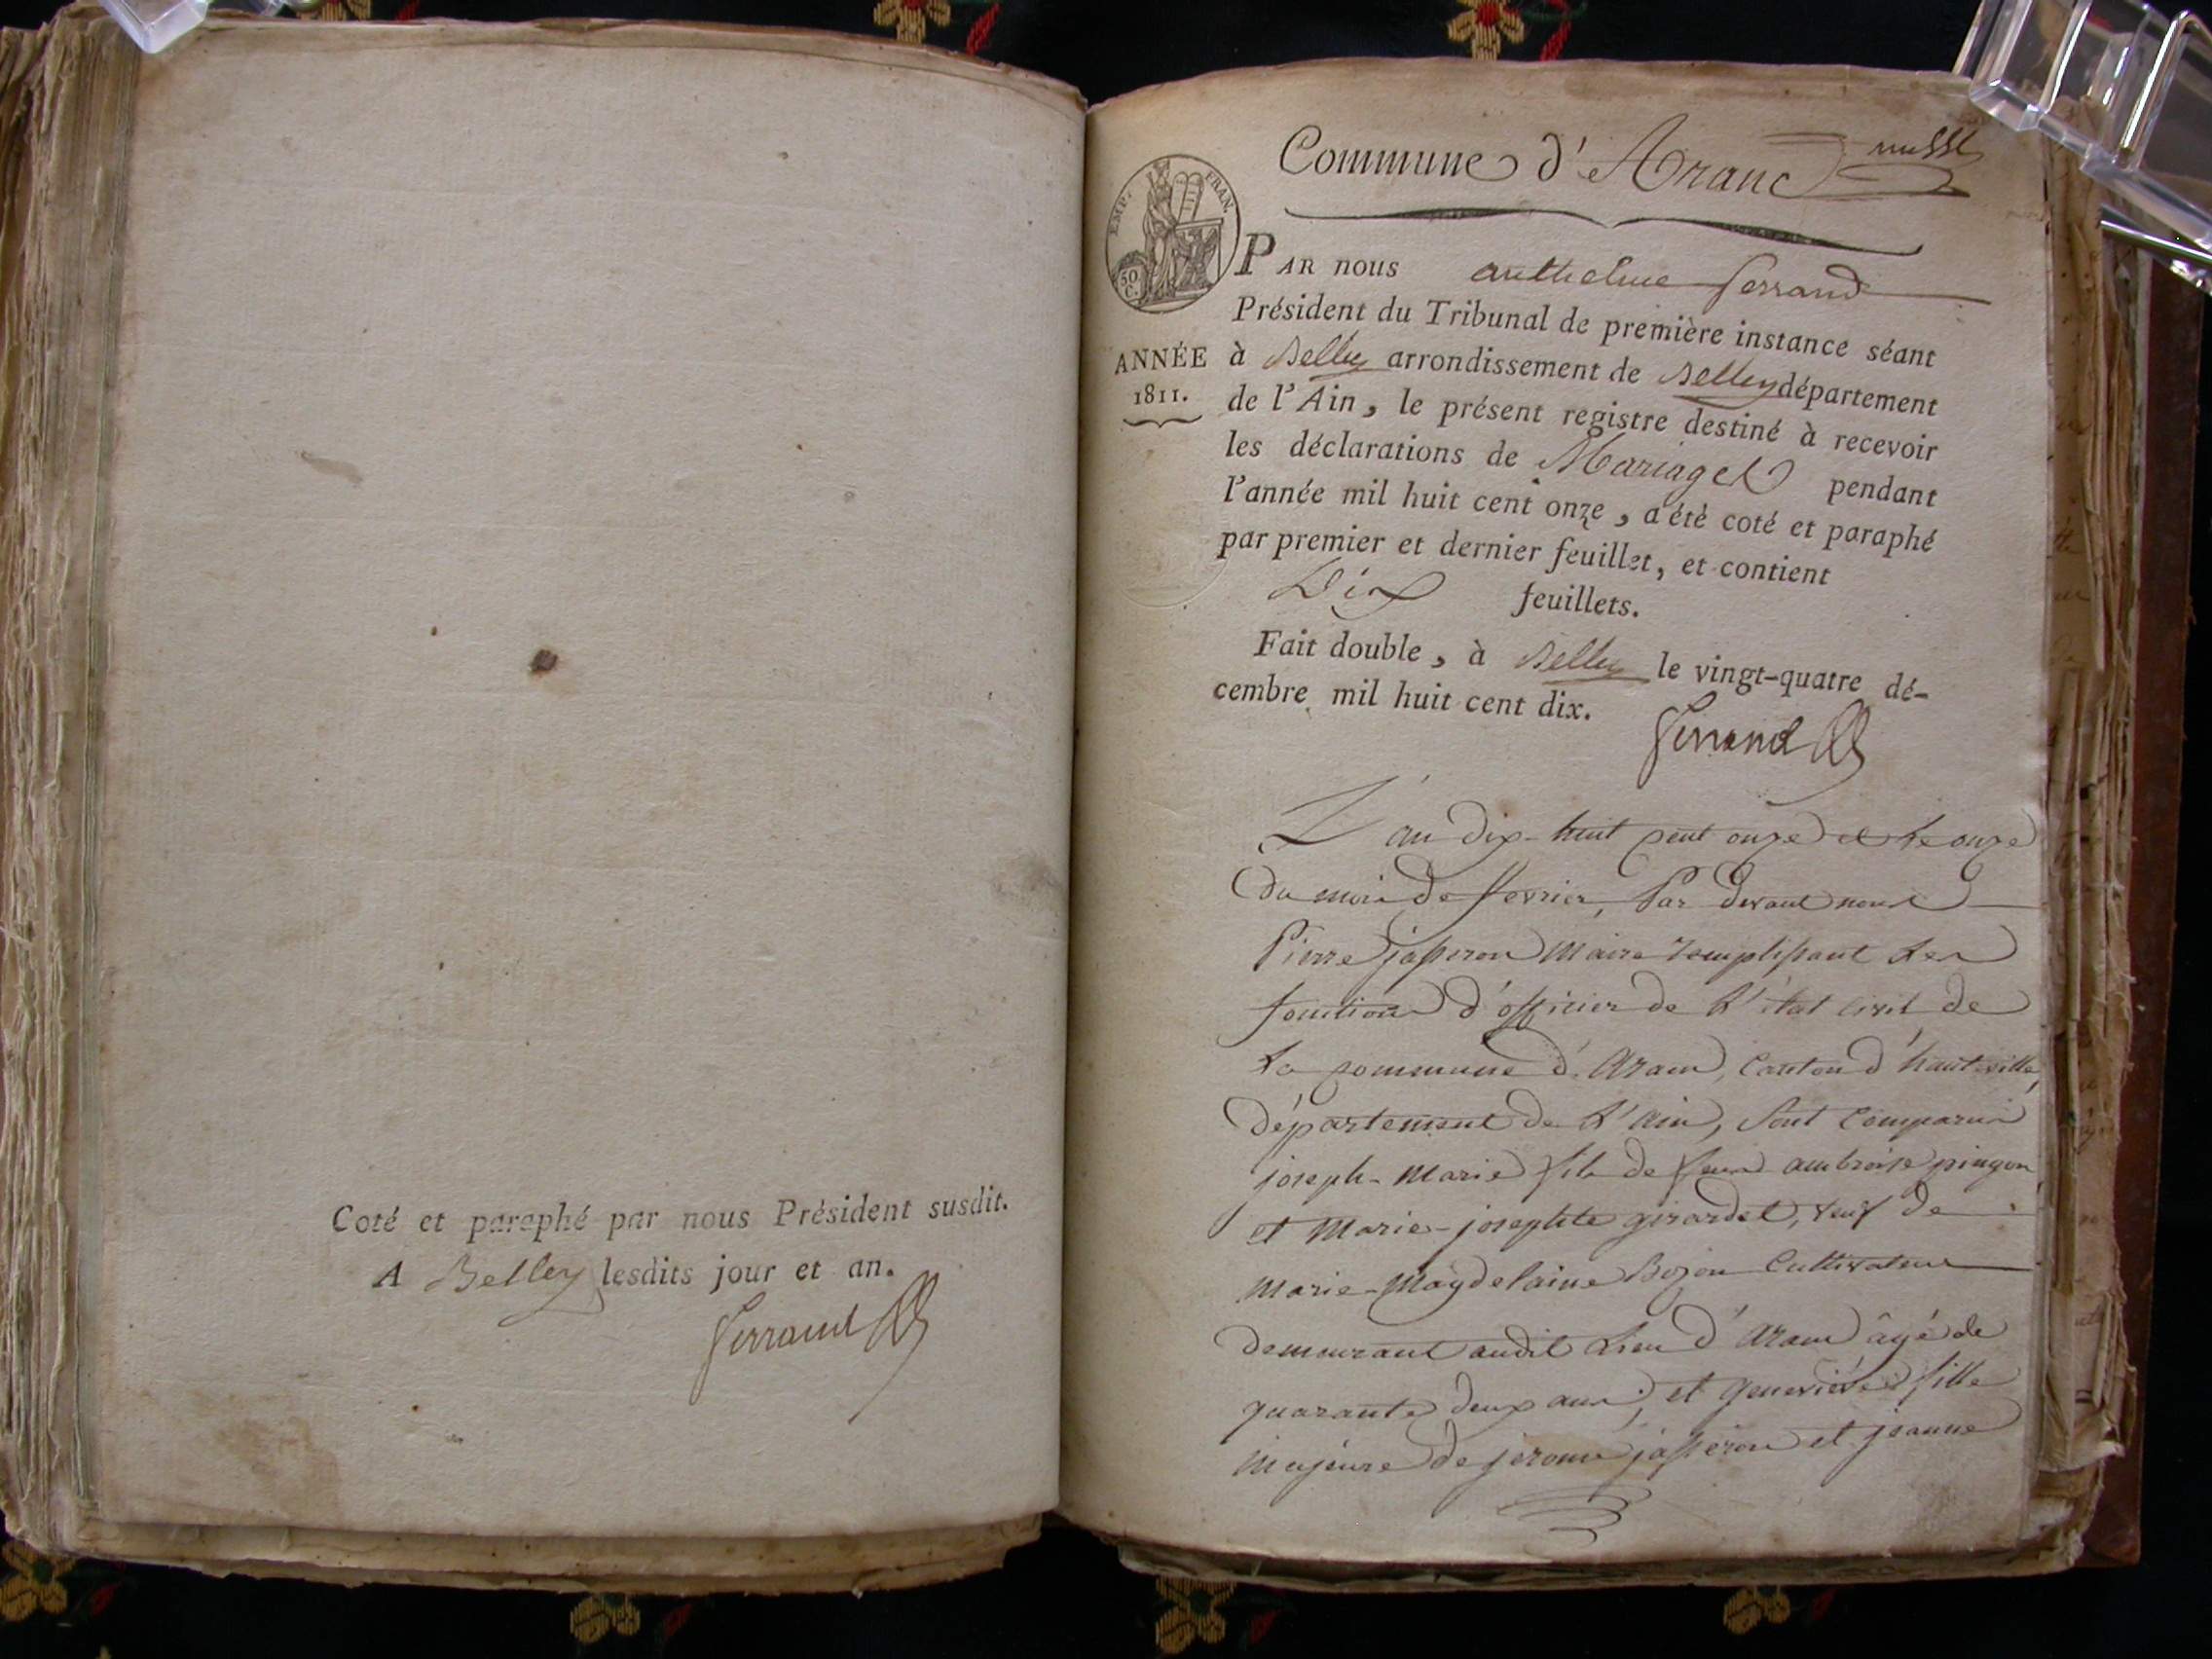 Coté et paraphé par nous Président susdit.
A Belley lesdits jour et an.
Ferrand
Commune d'Aranc
EMP. FRAN.
50 C.
ANNÉE
1811.
PAR nous anthelme ferrand
Président du Tribunal de première instance séant
à Belley arrondissement de Belley département
de l'Ain, le présent registre destiné à recevoir
les déclarations de Mariages pendant
l'année mil huit cent onze, a été coté et paraphé
par premier et dernier feuillet, et contient
Dix feuillets.
Fait double, à Belley le vingt-quatre dé-
cembre mil huit cent dix.
Ferrand
L'an dix-huit cent onze et le onze
du mois de fevrier, Par devant nous
Pierre jasseron Maire remplissant les
fonctions d'officier de l'état civil de
la commune d'Aranc, Canton d'hauteville,
département de l'ain, sont comparus
joseph-Marie fils de feux ambroise pingon
et Marie-josephte girardet, veuf de
Marie-Magdelaine Bozon Cultivateur
demeurant audit lieu d'Aranc âgé de
quarante deux ans; et genevieve fille
majeure de jerome jasseron et jeanne